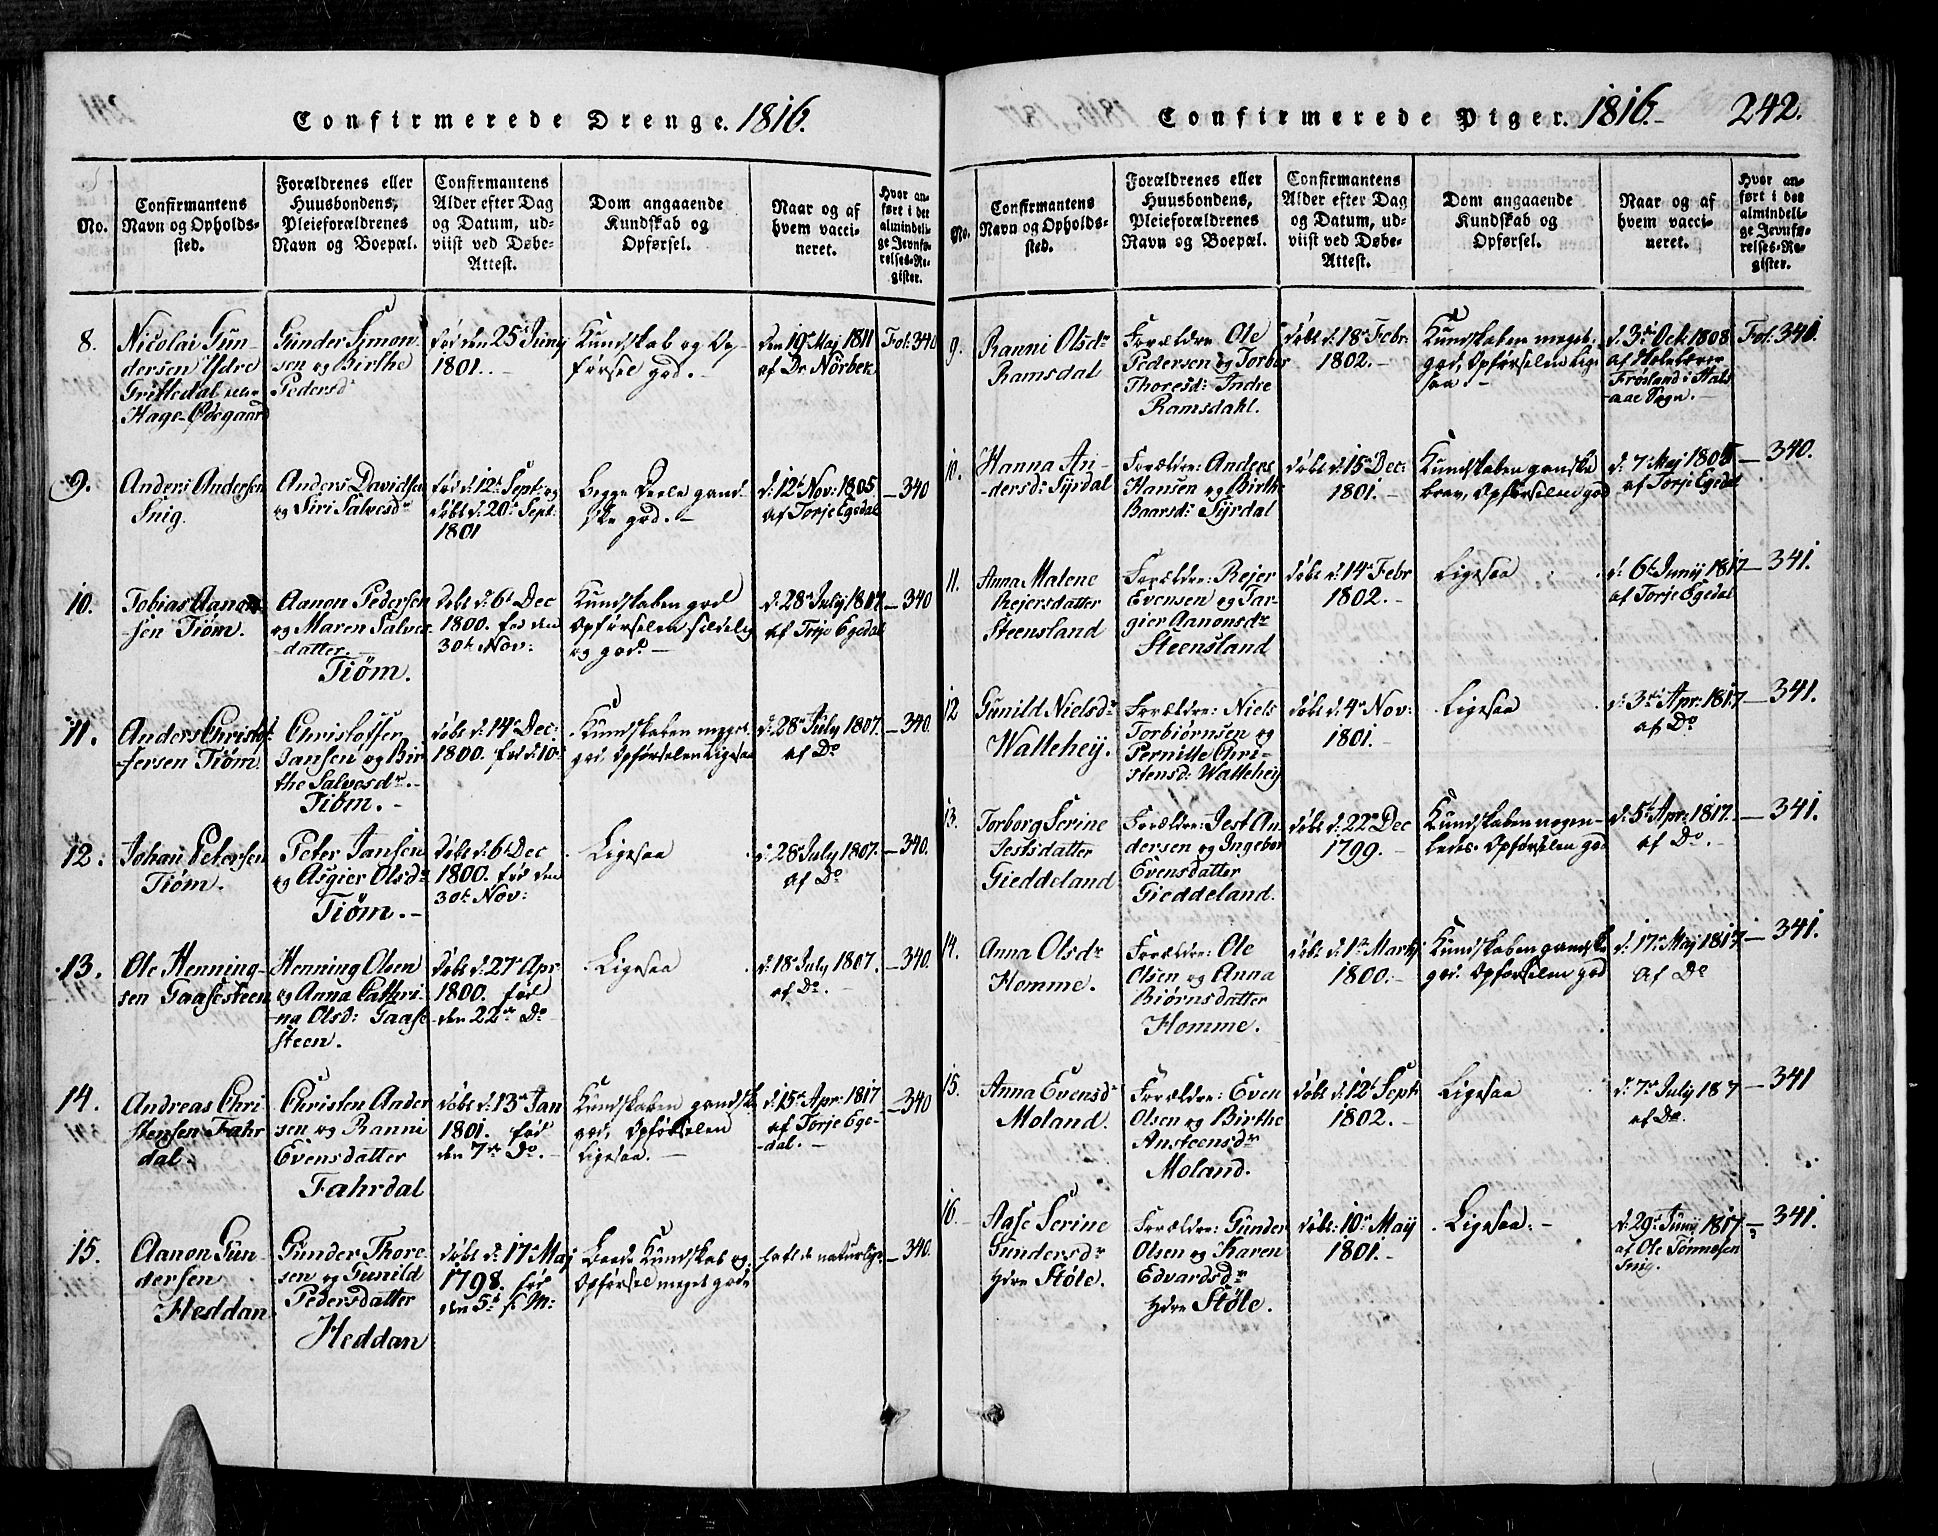 Confirmerede Drenge. 1816.
No.
Confirmantens
Navn og Opholds-
sted.
Forældrenes eller
Huusbondens,
Pleieforældrenes
Navn og Boepæl.
Confirmantens
Alder efter Dag
og Datum, ud-
viist ved Døbe-
Attest.
Dom angaaende
Kundskab og
Opførsel.
Naar og af
hvem vacci-
neret.
Hvor an-
ført i det
almindeli-
ge Jevnfø-
relses-Re-
gister.
8.
Nicolai Gun-
dersen Ydre
Grittedal
Hage-Ødegaard
Gunder Simon-
sen og Birthe
Pedersd
fød den 25de Junij
1801.
Kundskab og Op-
førsel god.
den 19de Maj 1811
af Dr Nörbek
Fol: 340
9.
Anders Andersen
Snig.
Anders Davidsen
og Siri Salvesdr
fød d: 12t Sept: og
døbt d: 20de Sept:
1801
Begge Deele gand-
ske god.
d: 12t Nov: 1805
af Torje Egedal
340
10.
Tobias Aanon-
sen Tiøm.
Aanon Pedersen
og Maren Salves-
datter.
Tiøm.
Døbt d: 6t Dec
1800. fød den
30t Nov:
Kundskaben god
Opførselen sædelig
og god.
d: 28de Julij 1807.
af Torje Egedal
340
11.
Anders Christof-
fersen Tiøm
Christoffer
Jansen og Bir-
the Salvesdr.
Tiøm.
døbt d: 14de Dec:
1800. fød d: 10:
Kundskaben meget
god. Opførselen Ligesaa
d: 28de July 1807.
af Do
340.
12.
Johan Petersen
Tiøm.
Peter Jansen
og Asgier Olsdr
Tiøm.
Døbt d: 6t Dec
1800. fød den
30t Nov:
Ligesaa
d: 28de July 1807.
af Do
340.
13.
Ole Henning-
sen Gaasesteen
Henning Olsen
og Anna Cathri-
na Olsd: Gaase
steen.
døbt d: 27de Apr
1800. fød
den 22de Do
Ligesaa
d: 18de July 1807.
af Do.
340.
14.
Andreas Chri-
stensen Fahr
dal.
Christen Ander
sen og Ranni
Evensdatter
Fahrdal
døbt d: 13de Jan
1801. fød
den 7de Do.
Kundskaben gandske
god, Opførselen
Ligesaa.
d: 15de Apr: 1817
af Torje Ege-
dal.
340
15.
Aanon Gun-
dersen
Heddan
Gunder Thore-
sen og Gunild
Pedersdatter
Heddan
døbt d: 17de Maj
1798. fød
den 5t s: M:
Baade Kundskab og
Opførsel meget gode
hafte naturlige
340.
Confirmerede Piger. 1816.
242.
No.
Confirmantens
Navn og Opholds-
sted.
Forældrenes eller
Huusbondens,
Pleieforældrenes
Navn og Boepæl.
Confirmantens
Alder efter Dag
og Datum, ud-
viist ved Døbe-
Attest.
Dom angaaende
Kundskab og
Opførsel.
Naar og af
hvem vacci-
neret.
Hvor an-
ført i det
almindeli-
ge Jevnfø-
relses-Re-
gister.
9.
Ranni Olsdr
Ramsdal
Forældre Ole
Pedersen og Torbor
Thoresd: Indre
Ramsdahl.
døbt d: 18de Febr
1802.
Kundskaben meget
god, Opførselen lige
saa.
d: 3de Oct: 1808
af
Frøsland i Hals
aae Sogn.
Fol: 340.
10.
Hanna An-
dersd: Syrdal
Forældre: Anders
Hansen og Birthe
Baarsd: Syrdal
døbt d: 15de Dec:
1801.
Kundskaben ganske
brav, Opførselen god
d: 7de Maj 1805
af Torje Egedal
340.
11.
Anna Malene
Reiersdatter
Steensland
Forældre: Rejer
Evensen og Tar-
gier Aanonsdr
Steensland
døbt d: 14de Febr
1802.
Ligesaa
d: 6t Junij 1817
af Torje Egedal
341.
12
Gunild Nielsdr
Wattehey.
Forældre: Niels
Torbiørnsen og
Pernille Chri-
stensd: Wattehey
døbt d: 4de Nov:
1801.
Ligesaa
d: 3de Apr: 1817
af Do
341.
13.
Torborg Serine
Jestsdatter
Gieddeland
Forældre: Jest An-
dersen og Ingebor
Evensdatter
Gieddeland.
døbt d: 22de Dec
1799.
Kundskaben nogen-
ledes. Opførselen god
d: 5t Apr: 1817.
af Do.
341.
14.
Anna Olsdr
Homme.
Forældre: Ole
Olsen og Anna
Biørnsdatter
Homme.
døbt d: 1te Martij
1800.
Kundskaben ganske
god. Opførselen god
d: 17de Maj 1817
af Do
341.
15.
Anna Evensdr
Moland.
Forældre: Even
Olsen og Birthe
Ansteensdr
Moland.
døbt d: 12t Sept:
1802.
Ligesaa
d: 7de July 187
af Do.
341
16.
Aase Serine
Gundersdr
Ydre Støle.
Forældre: Gunder
Olsen og Karen
Edvardsdr
Ydre Støle.
døbt: 10de May
1801.
Ligesaa.
d: 29de Junij 1817.
af Ole Tønnesen
Snig.
341.